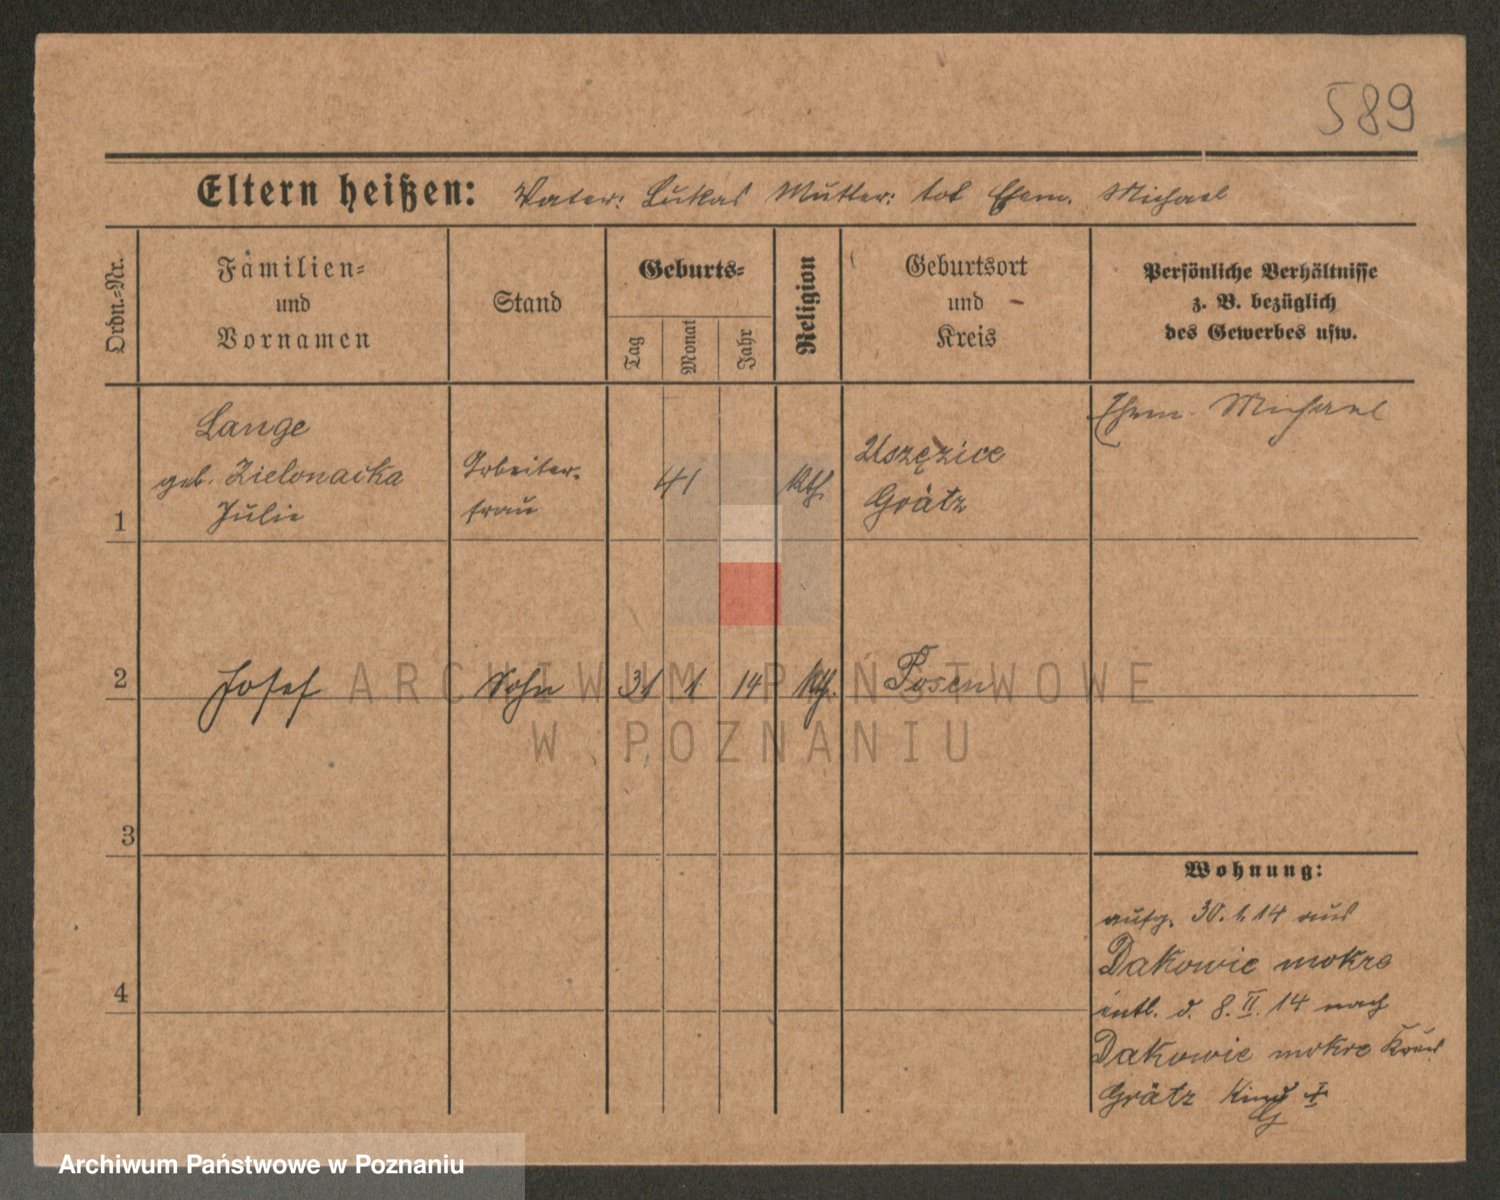 589
Eltern heißen: Vater: Lukas Mutter: tot Ehem. Michael
Ordn.-Nr.
Familien-
und
Vornamen
Stand
Geburts-
Tag
Monat
Jahr
Religion
Geburtsort
und
Kreis
Persönliche Verhältnisse
z. B. bezüglich
des Gewerbes usw.
1
Lange
geb. Zielonacka
Julie
Arbeiter-
frau
41
kth.
Grätz
Ehem. Michael
2
Josef
Sohn
31
1
14
kth.
Posen
3
4
Wohnung:
aufg. 30.1.14 aus
Dakowie mokre
entl. d. 8.II.14 nach
Dakowie mokre Kreis
Grätz Kind †
ARCHIWUM PAŃSTWOWE
W POZNANIU
Archiwum Państwowe w Poznaniu